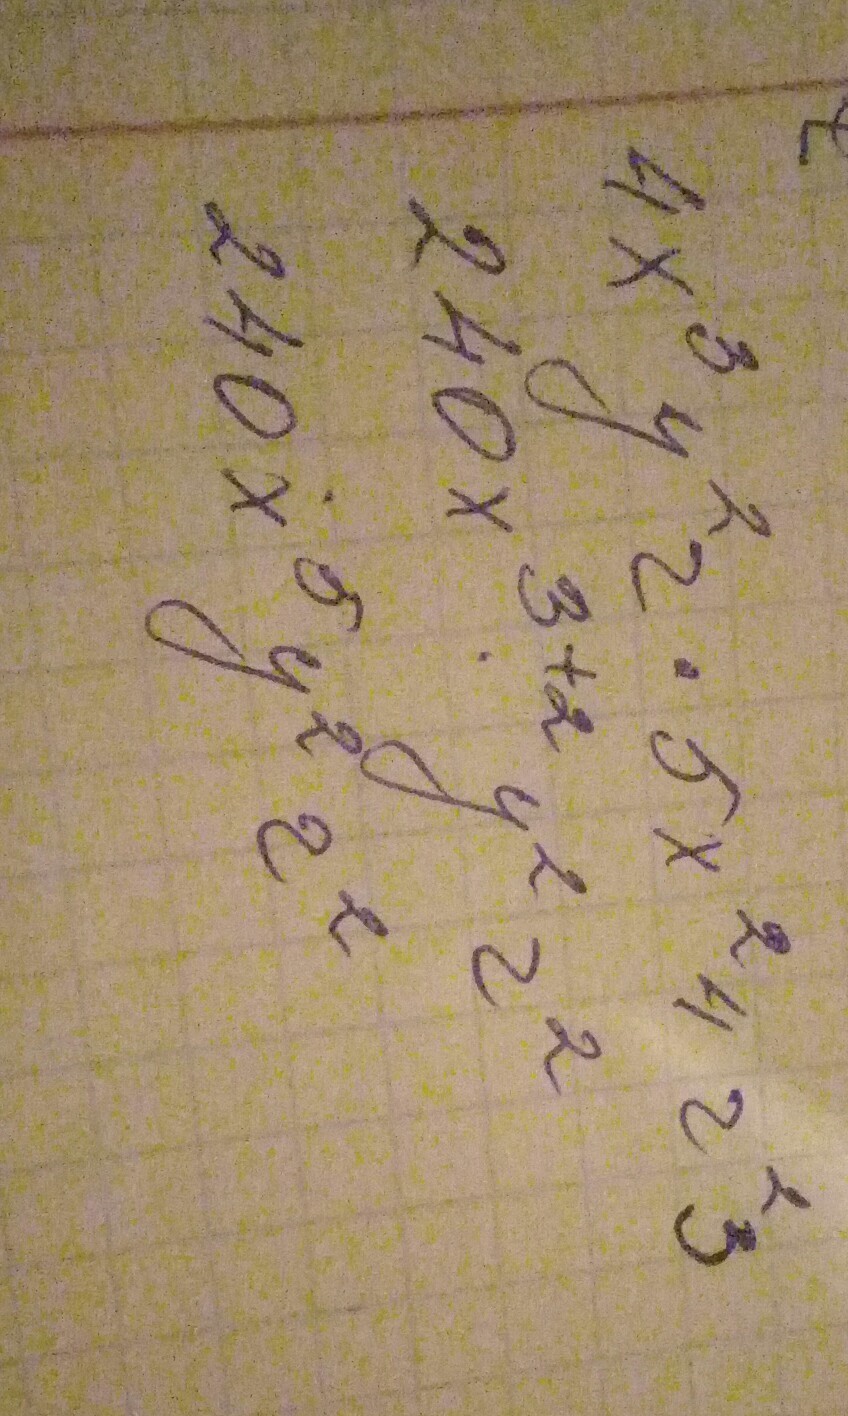 4x³y²z·5x²4z²3
240x³⁺²y²z²
240x⁵y²z²